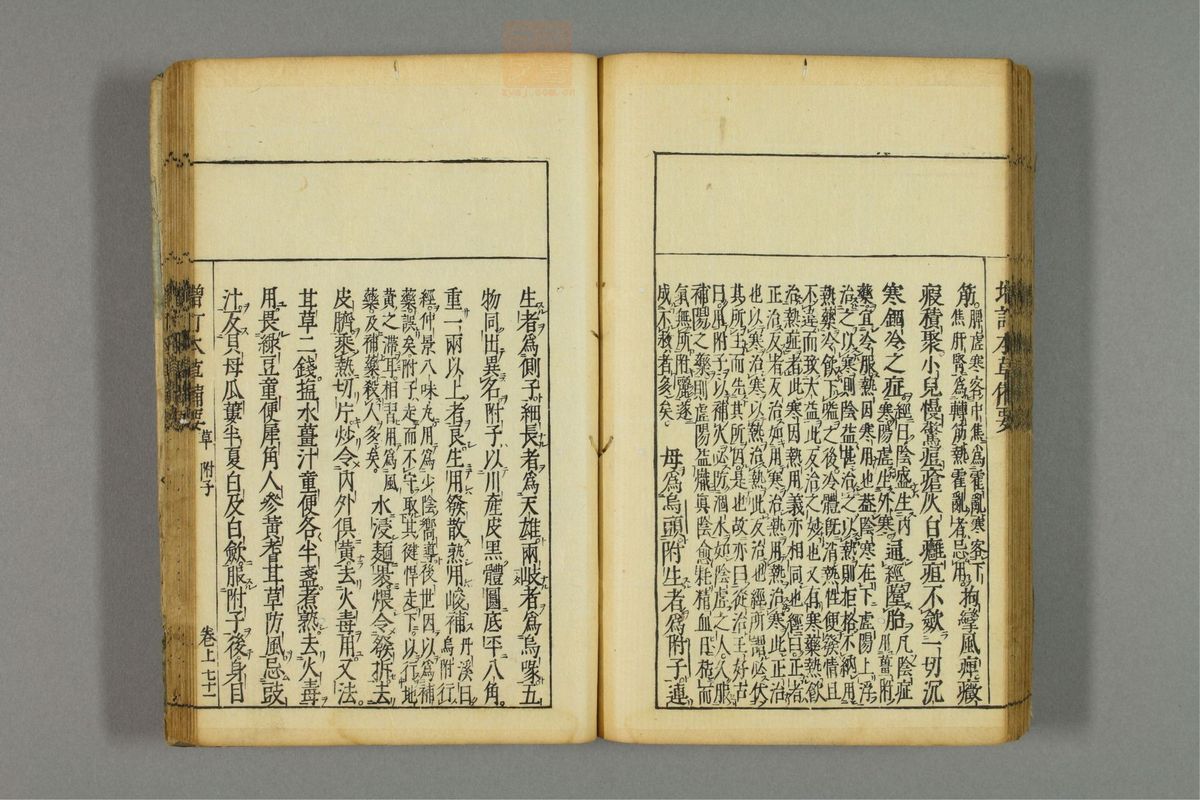 增訂本草備要
筋。脾虛寒客中焦爲霍亂寒客下焦肝腎爲轉筋熱霍亂者忌用。拘攣風痺癥
瘕積聚小兒慢驚痘瘡灰白癰疽不斂一切沉
寒錮冷之症。經曰陰盛生内寒陽虛生外寒。通經墮胎。凡陰症用薑附
藥宜冷服熱因寒用也蓋陰寒在下虛陽上浮
治之以寒則陰益甚治之以熱則拒格不納用
熱藥冷飲下嗌之後冷體既消熱性便發情且
不違而致大益此反治之妙也又有寒藥熱飲
治熱症者此寒因熱用義亦相同也經曰正者
正治反者反治如用寒治熱用熱治寒此正治
也以寒治寒以熱治熱此反治也經所謂必伏
其所主而先其所因是也故亦曰從治王好古
曰用附子以補火必防涸水如陰虛之人久服
補陽之藥則虛陽益熾真陰愈耗精血日枯而
氣無所附麗遂成不救者多矣。母爲烏頭附生者爲附子連
生者爲側子細長者爲天雄兩岐者爲烏喙五
物同出異名附子以川産皮黑體圓底平八角。
重一兩以上者良生用發散熟用峻補丹溪曰烏附行
經仲景八味丸用爲少陰嚮導後世因以爲補
藥誤矣附子走而不守取其健悍走下以行地
黄之滯耳相習用爲風
藥及補藥殺人多矣。水浸麵裹煨令發拆去
皮臍乘熱切片炒令内外俱黄去火毒用又法。
甘草二錢塩水薑汁童便各半盞煮熟去火毒
用畏綠豆童便犀角人參黄耆甘草防風忌豉
汁反貝母瓜蔞半夏白及白斂服附子後身目
增訂本草備要
草 附子
卷上七十一